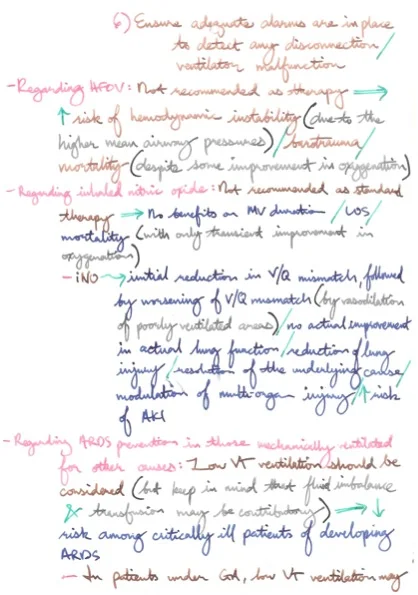 6) Ensure adequate alarms are in place
to detect any disconnection/
ventilator malfunction
- Regarding HFOV: Not recommended as therapy →
↑ risk of hemodynamic instability (due to the
higher mean airway pressures)/barotrauma/
mortality (despite some improvement in oxygenation)
- Regarding inhaled nitric oxide: Not recommended as standard
therapy → No benefits on MV duration/LOS/
mortality (with only transient improvement in
oxygenation)
- iNO → initial reduction in V/Q mismatch, followed
by worsening of V/Q mismatch (by vasodilation
of poorly ventilated areas)/no actual improvement
in actual lung function/reduction of lung
injury/resolution of the underlying cause/
modulation of multi-organ injury/↑ risk
of AKI
- Regarding ARDS prevention in those mechanically ventilated
for other causes: Low VT ventilation should be
considered (but keep in mind that fluid imbalance
& transfusion may be contributory) → ↓
risk among critically ill patients of developing
ARDS
- In patients under GA, low VT ventilation may